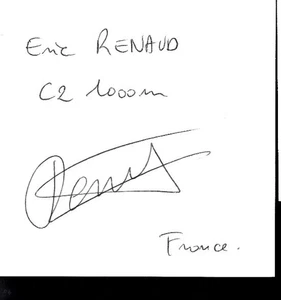 Eric RENAUD
C2 1000m
France.